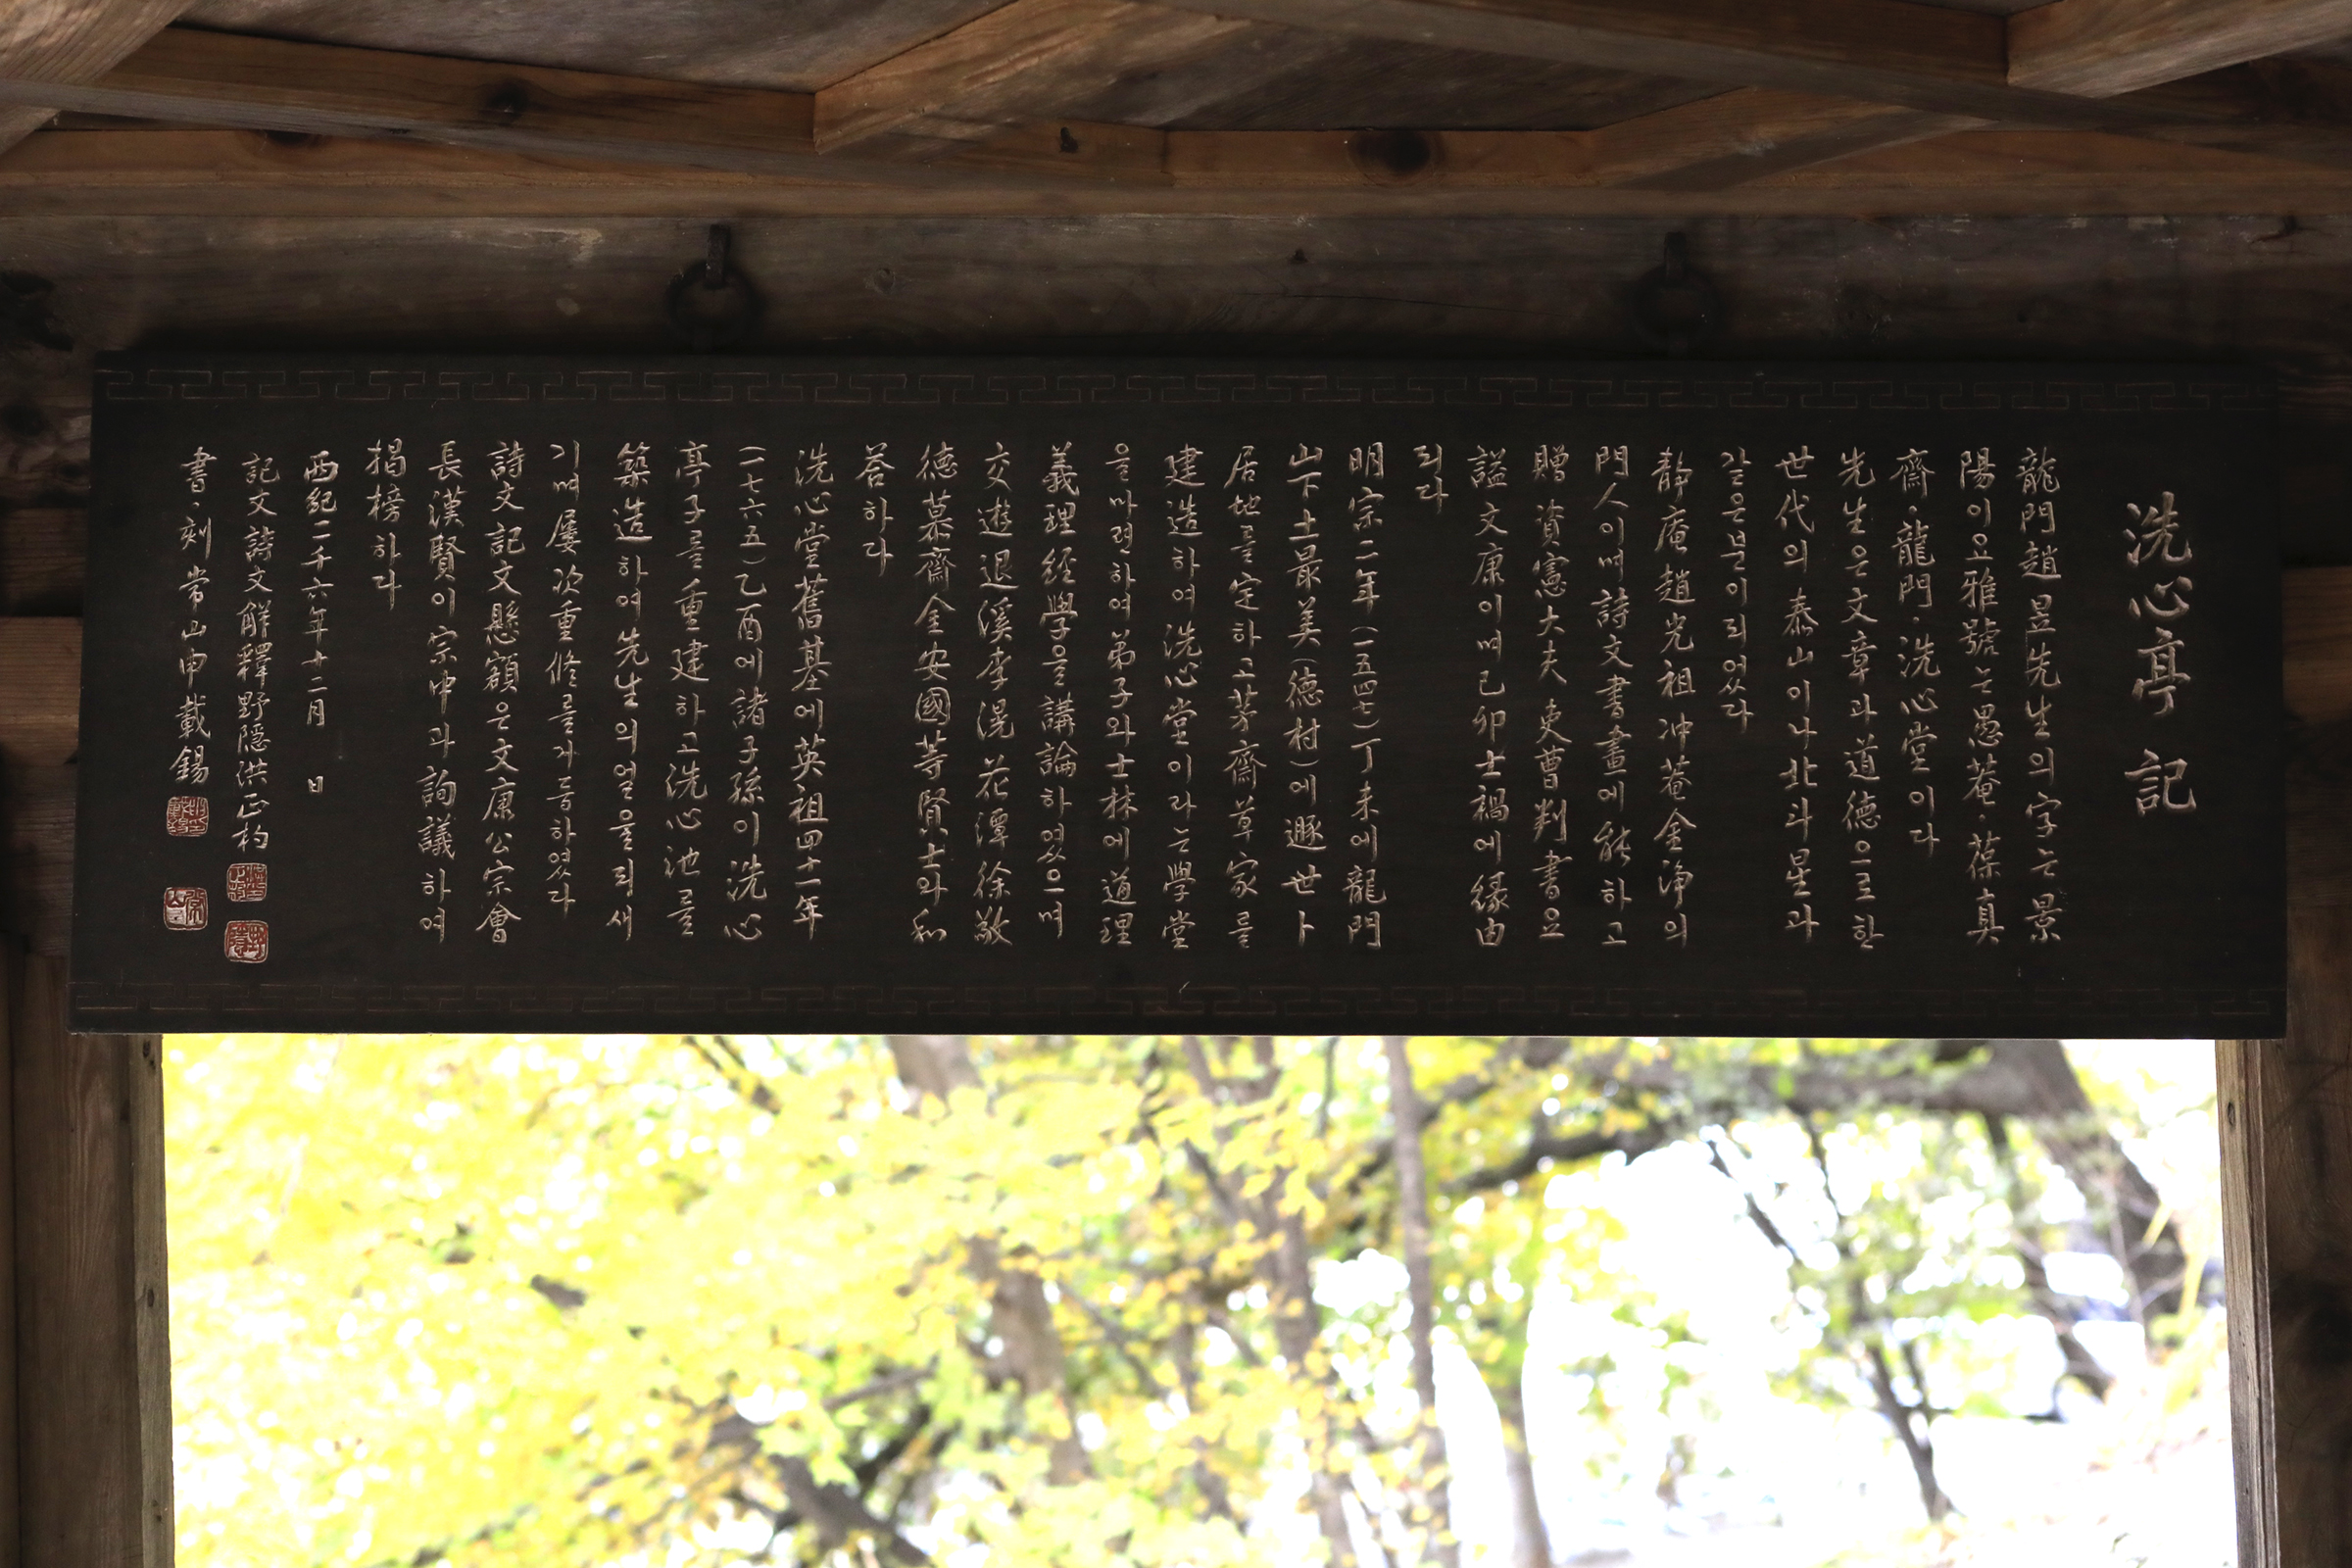 洗心亭 記
龍門趙昱先生의 字는 景
陽이요 雅號는 愚菴·葆真
齋·龍門·洗心堂이다
先生은 文章과 道德으로 한
世代의 泰山이나 北斗星과
같은 분이 되었다
靜庵 趙光祖 冲菴 金淨의
門人이며 詩文書畫에 能하고
贈資憲大夫 吏曹判書요
謚文康이며 己卯士禍에 緣由
되다
明宗二年(一五四七)丁未에 龍門
山下土最美(德村)에 遯世卜
居地를 定하고 茅齋草家를
建造하여 洗心堂이라는 學堂
을 마련하여 弟子와 士林에 道理
義理 經學을 講論하였으며
交遊 退溪 李滉 花潭 徐敬
德 慕齋 金安國等 賢士와 和
答하다
洗心堂 舊基에 英祖四十一年
(一七六五)乙酉에 諸子孫이 洗心
亭子를 重建하고 洗心池를
築造하여 先生의 얼을 되새
기며 屢次 重修를 가듭하였다
詩文記文懸額은 文康公宗會
長漢賢이 宗中과 詢議하여
揭榜하다
西紀二千六年十二月 日
記文詩文解釋 野隱 洪正杓
書·刻 常山 申載錫